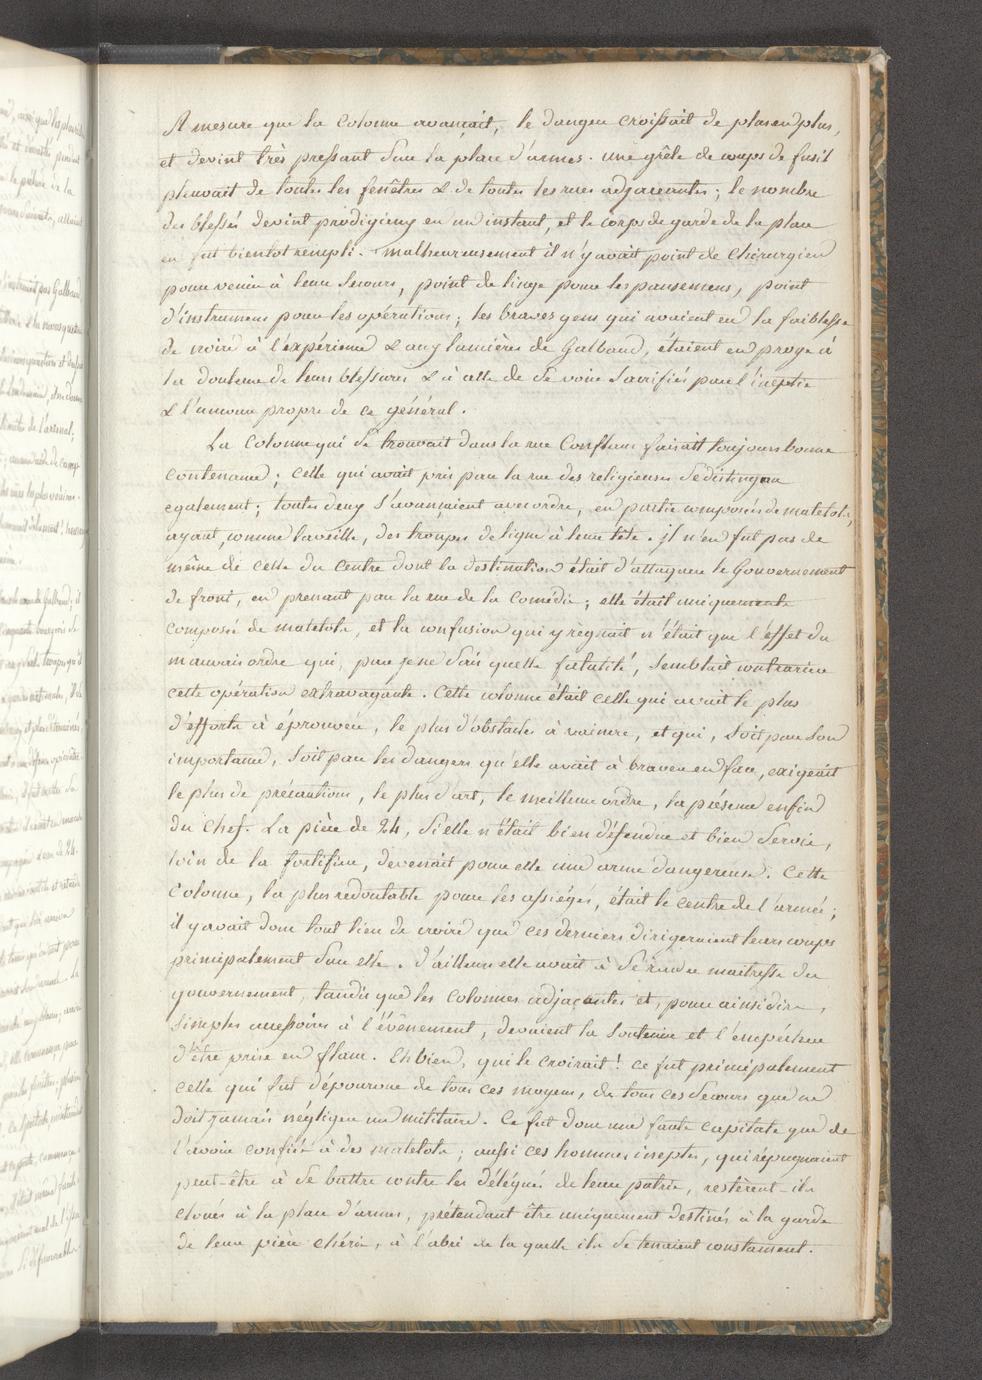 A mesure que la Colonne avançait, le danger croissait de plus en plus,
et devint très pressant sur la place d'armes. une grêle de coups de fusil
pleuvait de toutes les fenêtres & de toutes les rues adjaçantes ; le nombre
des blessés devint prodigieux en un instant, et le corps de garde de la place
en fut bientot rempli. Malheureusement il n'y avait point de Chirurgien
pour venir à leur secours, point de linge pour les pansemens, point
d'instrumens pour les opérations ; les braves gens qui avaient eu la faiblesse
de croire à l'expérience & aux lumières de Galbaud, étaient en proye à
la douleur de leurs blessures & à celle de se voir sacrifiés par l'ineptie
& l'amour propre de ce général.
La Colonne qui se trouvait dans la rue Conflans faisait toujours bonne
contenance ; celle qui avait pris par la rue des religieuses se distingua
egalement ; toutes deux s'avançaient avec ordre, en partie composées de matelots,
ayant, comme la veille, des troupes de ligne à leur tête. il n'en fut pas de
même de celle du Centre dont la destination était d'attaquer le Gouvernement
de front, en prenant par la rue de la Comédie ; elle était uniquement
composée de matelots, et la confusion qui y règnait n'était que l'effet du
mauvais ordre qui, par je ne sais quelle fatalité, semblait contrarier
cette opération extravagante. Cette colonne était celle qui avait le plus
d'efforts à éprouver, le plus d'obstacles à vaincre, et qui, soit par son
importance, soit par les dangers qu'elle avait à braver en face, exigeait
le plus de précautions, le plus d'art, le meilleur ordre, la présence enfin
du Chef. La pièce de 24, si elle n'était bien défendue et bien servie,
loin de la fortifier, devenait pour elle une arme dangereuse. Cette
Colonne, la plus redoutable pour les assiégés, était le centre de l'armée ;
il y avait donc tout lieu de croire que ces derniers dirigeraient leurs coups
principalement sur elle. d'ailleurs elle avait à se rendre maitresse du
gouvernement, tandis que les Colonnes adjaçantes et, pour ainsi dire,
simples accessoires à l'évènement, devaient la soutenir et l'empêcher
d'être prise en flanc. Eh bien, qui le croirait ! ce fut principalement
celle qui fut dépourvue de tous ces moyens, de tous ces secours que ne
doit jamais négliger un militaire. Ce fut donc une faute capitale que de
l'avoir confiée à des matelots ; aussi ces hommes ineptes, qui répugnaient
peut-être à se battre contre les délégués de leur patrie, restèrent-ils
cloués à la place d'armes, prétendant être uniquement destinés à la garde
de leur pièce chérie, à l'abri de la quelle ils se tenaient constament.